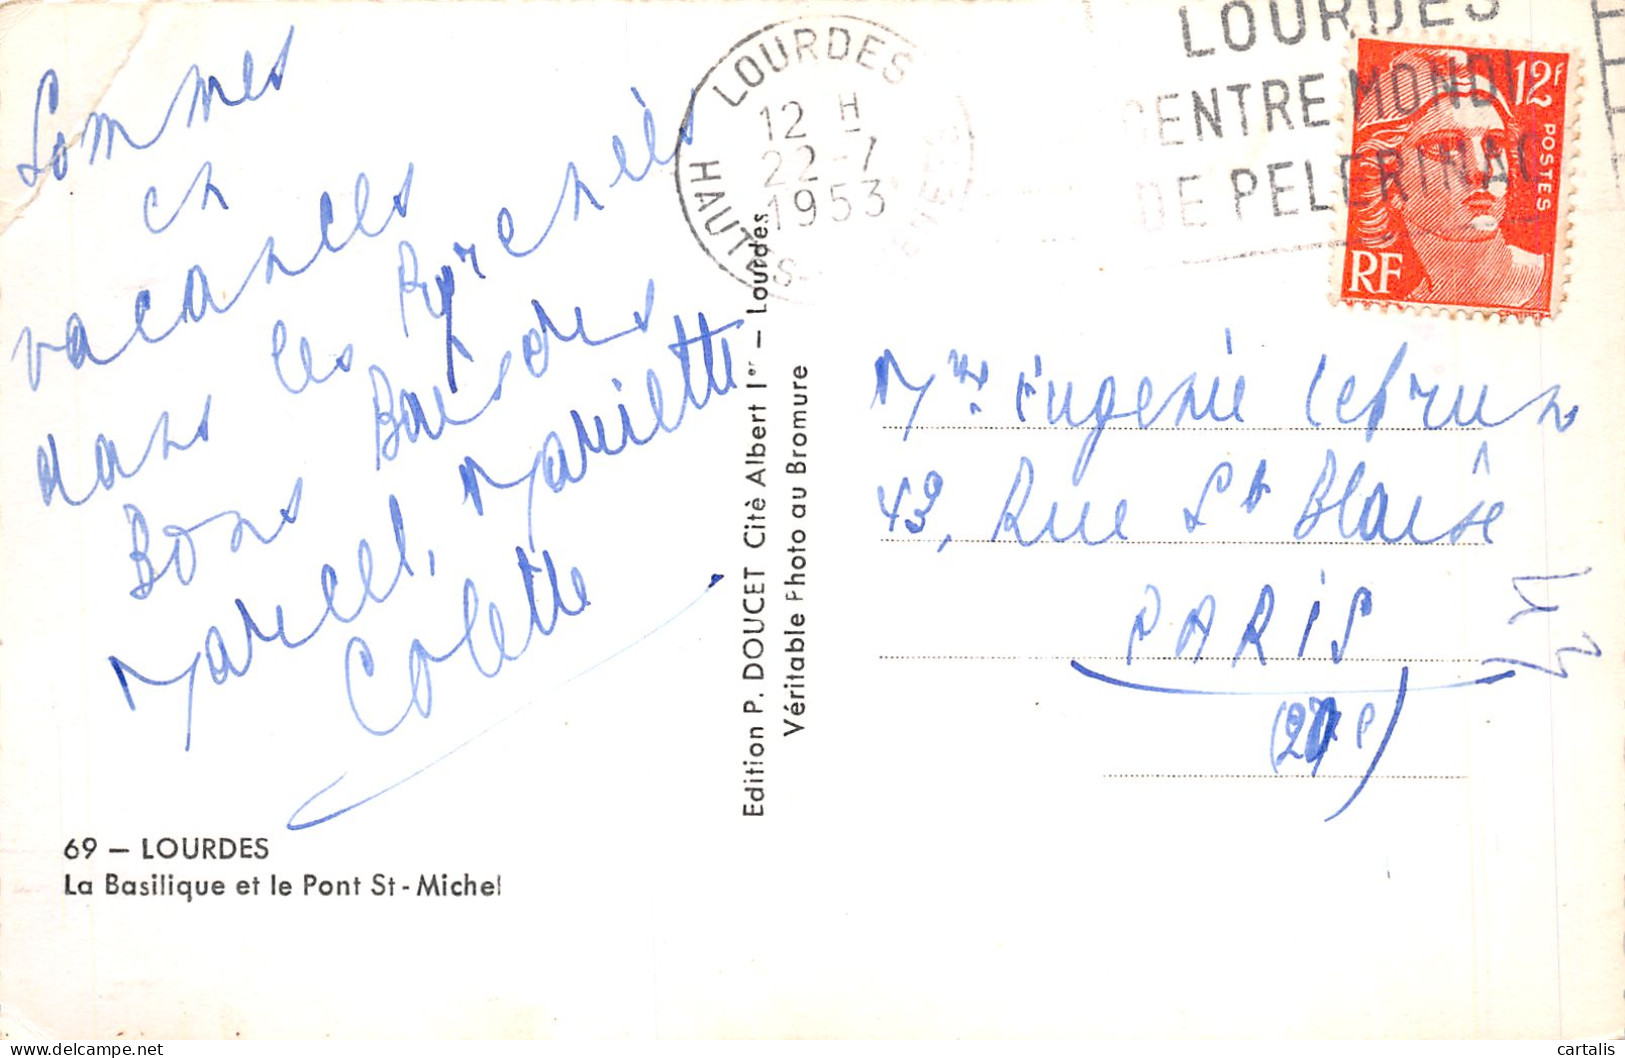 Sommes
en
vacances
dans les Pyrenèés
Bons Baisers
Marcel, Mariette
Colette
69 — LOURDES
La Basilique et le Pont St-Michel
Edition P. DOUCET Cité Albert 1er — Lourdes
Véritable Photo au Bromure
LOURDES
12 H
22-7
1953
HAUTES-
LOURDES
CENTRE MONDI
DE PELERINAG
12F
POSTES
RF
Mme Eugenie Lebrun
43, Rue St Blaise
PARIS
(20 e)
cartalis